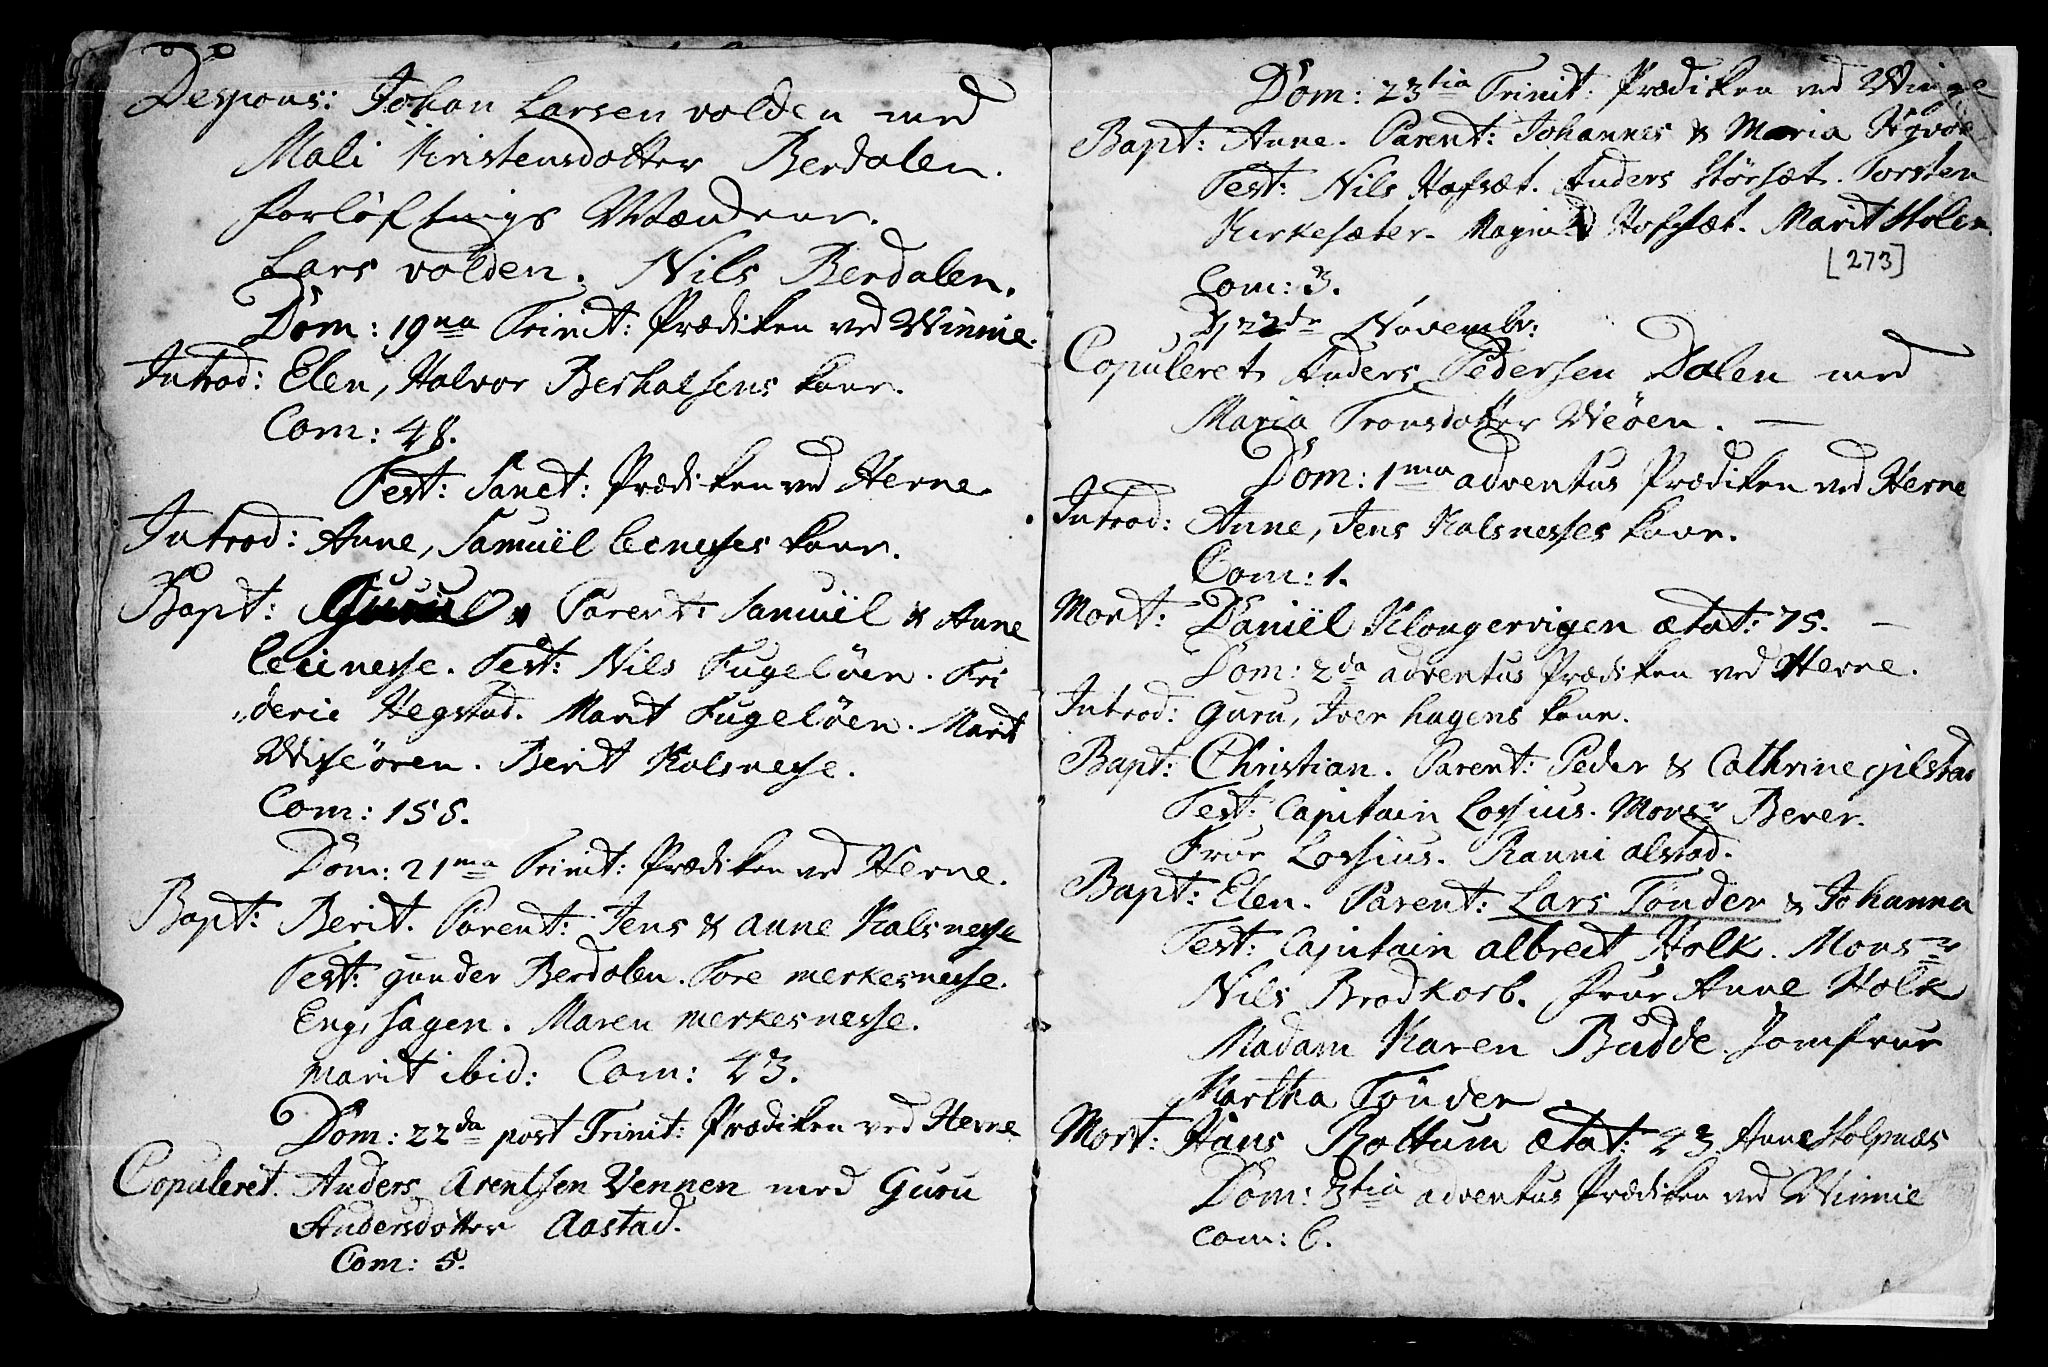 Despons: Johan Larsen volden med
Mali Kristensdotter Berdalen.
forløfningss Mændene.
Lars volden. Nils Berdalen.
Dom: 19na Trinit: Prædiken ved Winnie.
Introd: Elen, Halvor Berhalsens kone.
Com: 48.
Fest: Sanct: Prædiken ved Herne
Introd: Anne, Samuël Leenesses kone.
Bapt: Parent: Samuël & Anne
Leenesse. Test: Nils Fugeløen. Fri
deric Hegstad. Marit Fugeløen. Marit
Wesseøren. Berit Kalsnesse.
Com: 155.
Dom: 21ma Trinit: Prædiken ved Herne.
Bapt: Berit. Parent: Jens & Anne Kalsnesse
Test: Gunder Berdalen. Tore merkesnesse.
Eng, sagen. Maren merkesnesse.
Marit ibid: Com: 43.
Dom: 22da post Trinit: Prædiken ved Herne
Copuleret. Anders Arentsen Vennen med Guru
Andersdotter Aastad.
Com: 5.
Dom: 23tia Trinit: Prædiken ved Winge
Bapt: Anne. Parent: Johannes & Maria
Test: Nils Hofsæt. Anders Størsæt. Torsten
Kirkesæter. Magnild Hofsæt. Marit Stolen.
[273]
Com: 3.
D, 22de Novembr:
Copuleret Anders Pedersen Dalen med
Maria Tronsdotter Weøen. —
Dom: 1ma adventus Prædiken ved Herne
Introd: Anne, Jens Kalsnesses kone.
Com: 1.
Mort: Daniël Klongervigen ætat: 75. —
Dom: 2da adventus Prædiken ved Herne.
Introd: Guru, Iver hagens kone.
Bapt: Christian. Parent: Peder & Cathrine gilstad
Test: Capitain Lossius. Monsr Berer.
Frue Lossius. Ranni alstad.
Bapt: Elen. Parent: Lars Tönder & Johanna
Test: Capitain Albrect Holk. Monsr
Nils Brodkorb. frue Anne Holk
Madam Karen Budde. Jomfrue
Martha Tönder.
Mort: Hans Rottum ætat: 23. Anne Stolpnæs
Dom: 3tia adventus Prædiken ved Winnie
Com: 6.